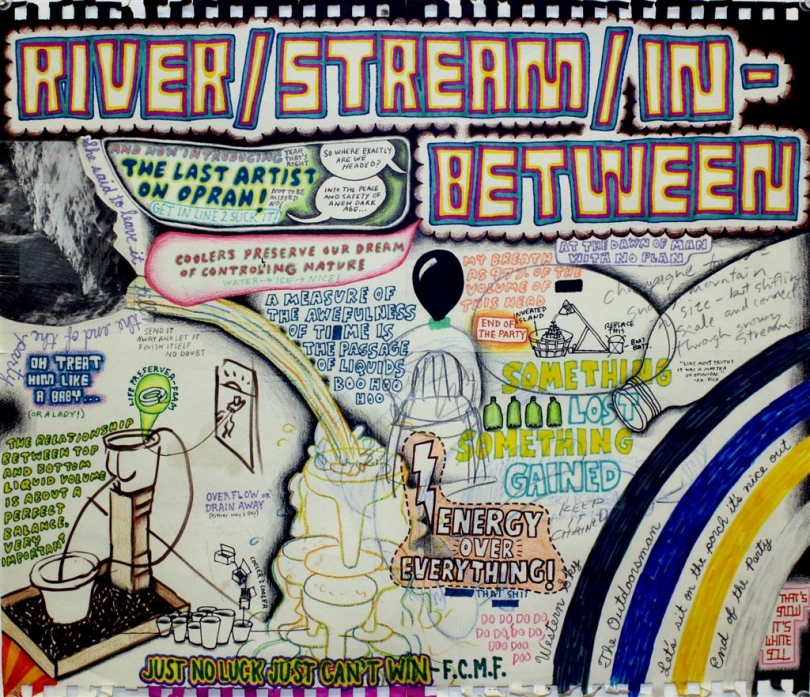 RIVER/STREAM/IN-
BETWEEN
She said to leave it
the end of the party
AND NOW INTRODUCING
YEAH
THAT'S
RIGHT
THE LAST ARTIST
ON OPRAH!
NOT TO BE
MISSED
GET IN LINE 2 SUCK IT!
SO WHERE EXACTLY
ARE WE
HEADED?
INTO THE PEACE
AND SAFETY OF
A NEW DARK
AGE...
COOLERS PRESERVE OUR DREAM
OF CONTROLING NATURE
WATER→ICE→NICE!
A MEASURE OF
THE AWEFULNESS
OF TIME IS
THE PASSAGE
OF LIQUIDS
BOO HOO
HOO
MY BREATH
AS 97% OF THE
VOLUME OF
THIS HEAD
AT THE DAWN OF MAN
WITH NO PLAN
Champagne
mountain
size - but shifting
scale and connect
through snowy
streams
"LIKE MOST TRUTHS
IT WAS A MATTER
OF OPINION."
END OF
THE PARTY
INVERTED
ISLAND
REPLACE
THIS
SOMETHING
LOST
SOMETHING
GAINED
KEEP
IT
CHAINED
SEND IT
AWAY AND LET IT
FINISH ITSELF
NO DOUBT
OH TREAT
HIM LIKE
A BABY...
(OR A LADY!)
LIFE PRESERVER-FOAM
THE RELATIONSHIP
BETWEEN TOP
AND BOTTOM
LIQUID VOLUME
IS ABOUT A
PERFECT
BALANCE.
VERY
IMPORTANT
OVERFLOW OR
DRAIN AWAY
COOLER 2 COOLER
ENERGY
OVER
EVERYTHING!
THAT SHIT
DO DO DO DO
DO DO, DO DO,
DO DO DO
DOO
Western Sky
The Outdoorsman
Let's sit on the porch it's nice out
End of the Party
THAT'S
SNOW
IT'S
WHITE
STILL
JUST NO LUCK JUST CAN'T WIN - F.C.M.F.